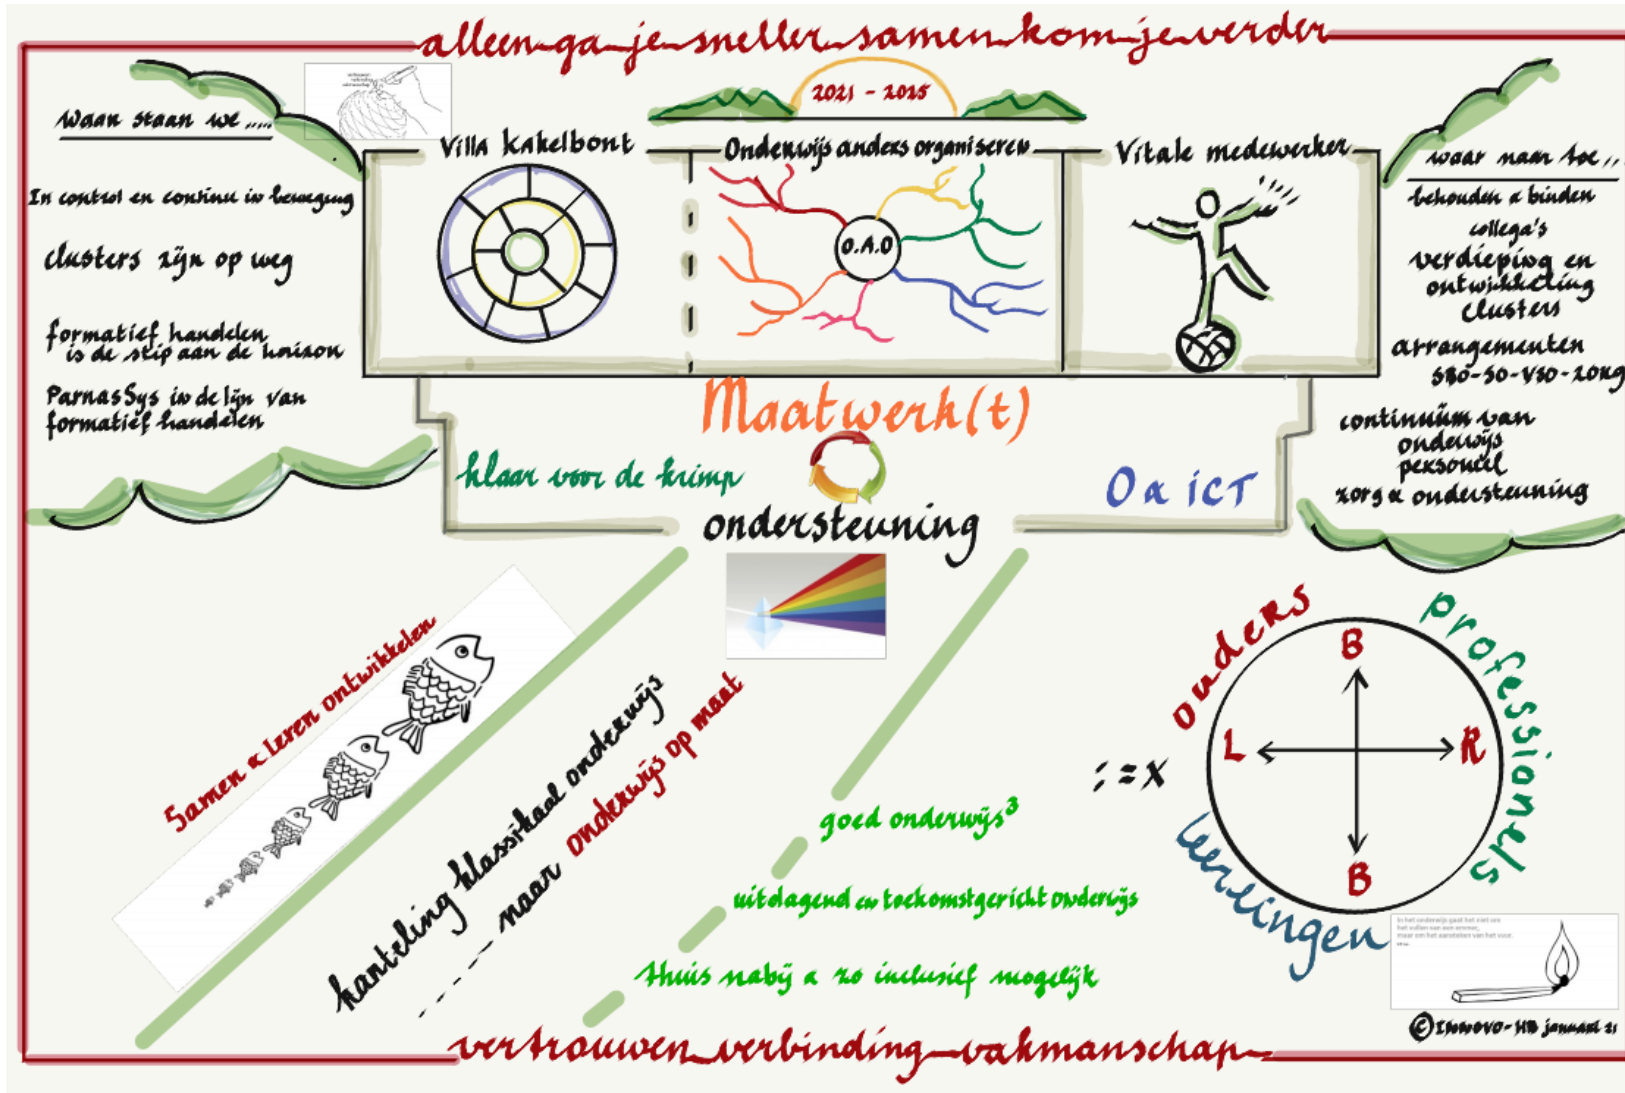 alleen ga je sneller samen kom je verder
2021 - 2025
waar staan we .....
In control en continu in beweging
clusters zijn op weg
formatief handelen
is de stip aan de horizon
ParnasSys in de lijn van
formatief handelen
vertrouwen
verbinding
vakmanschap
Villa Kakelbont
Onderwijs anders organiseren
O.A.O
Vitale medewerker
waar naar toe ..
behouden & binden
collega's
verdieping en
ontwikkeling
clusters
arrangementen
SBO-SO-VSO-zorg
continuüm van
onderwijs
personeel
zorg & ondersteuning
Maatwerk(t)
klaar voor de krimp
O & ICT
ondersteuning
Samen & leren ontwikkelen
kanteling klassikaal onderwijs
---- naar onderwijs op maat
goed onderwijs³
uitdagend en toekomstgericht onderwijs
thuis nabij & zo inclusief mogelijk
:=x
ouders
professionels
leerlingen
B
L
R
B
In het onderwijs gaat het niet om
het vullen van een emmer,
maar om het aansteken van het vuur.
© Innovo-HB januari 21
vertrouwen verbinding vakmanschap